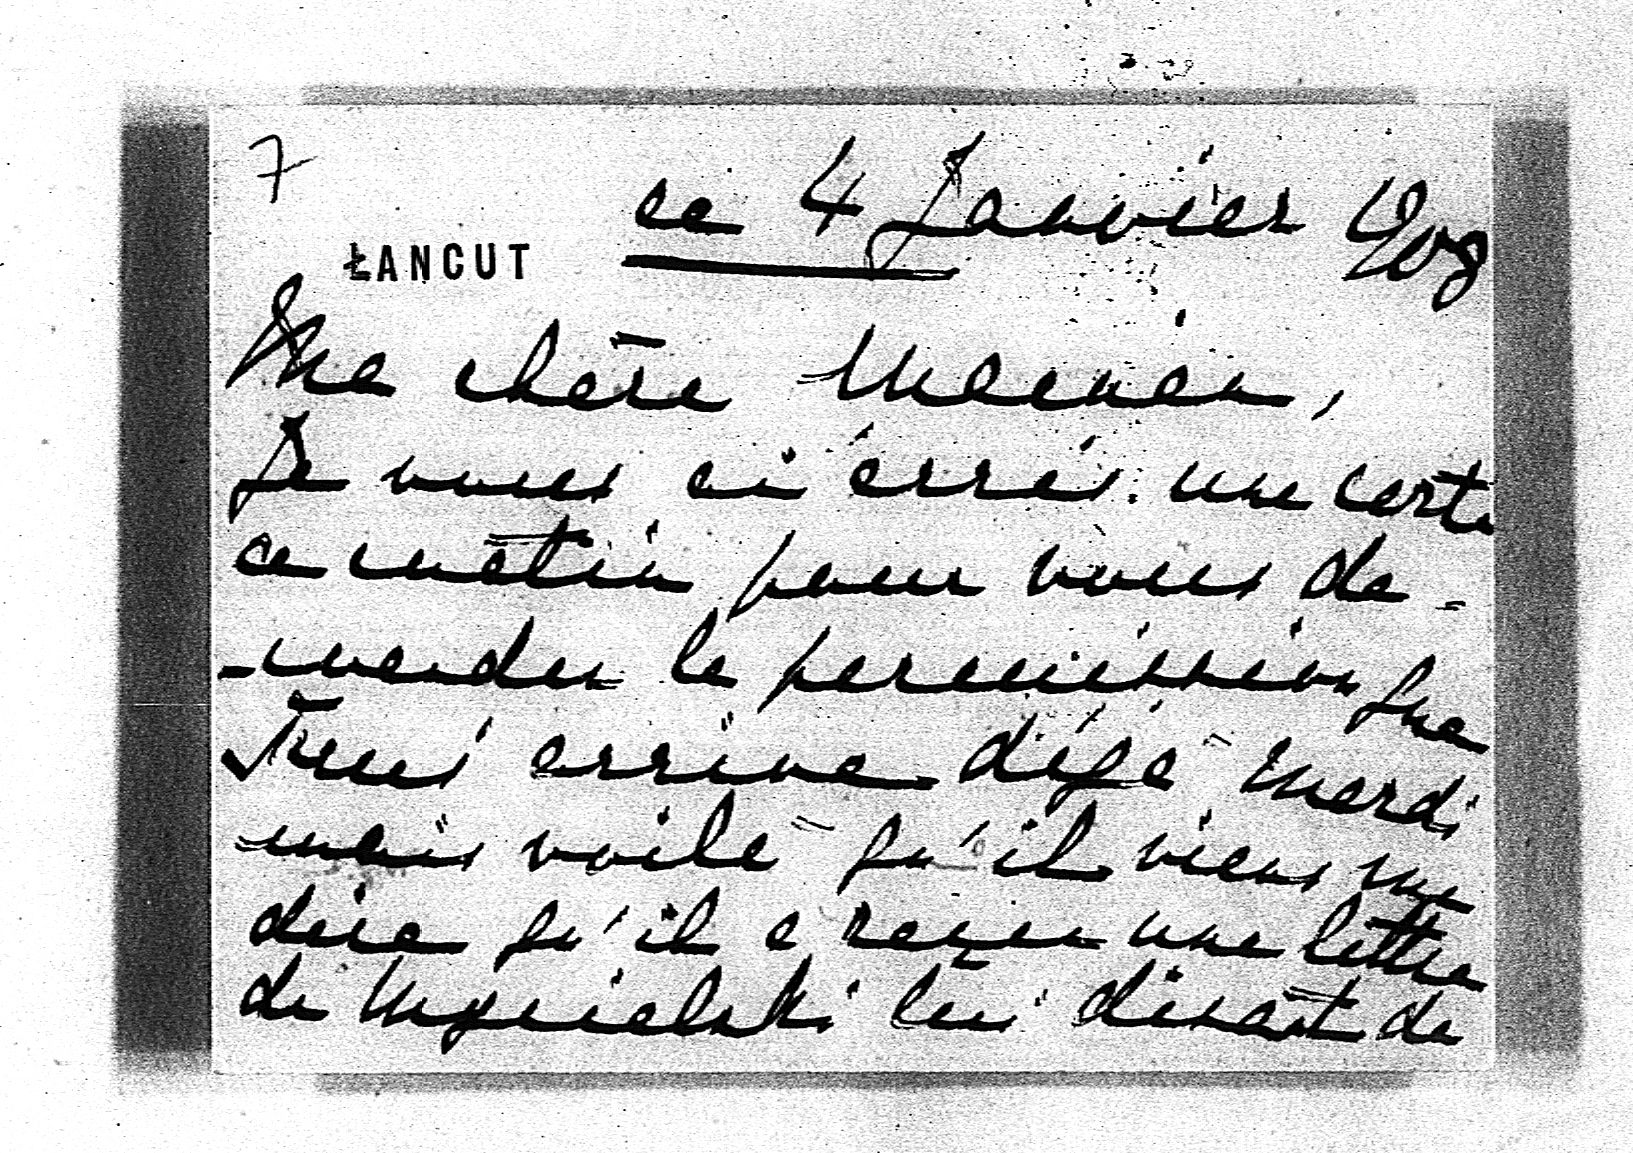 7
ce 4 Janvier 1908
ŁANCUT
Ma chère Maman,
Je vous ai écris une carte
ce matin pour vous de-
-mander la permission que
arrive déjà Mardi
mais voilà qu'il viens me
dire qu'il a reçu une lettre
de Mycielski lui disant de